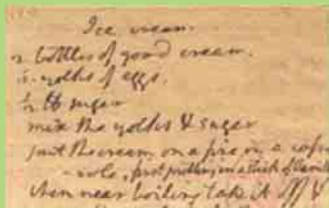 Ice cream.
2. bottles of good cream.
6. yolks of eggs.
½ ℔ sugar
mix the yolks & sugar
put the cream on a fire in a
first putting in a stick of
when near boiling take it off &